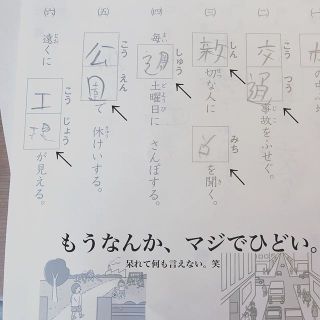 ㈡
こう つう
交通事故をふせぐ。
㈢
しん
切な人に
みち
を聞く。
㈣
しゅう
毎週土曜日に さんぽする。
㈤
こう えん
公 で 休けいする。
㈥
遠くに
こう じょう
工 が見える。
もうなんか、マジでひどい。
呆れて何も言えない。笑